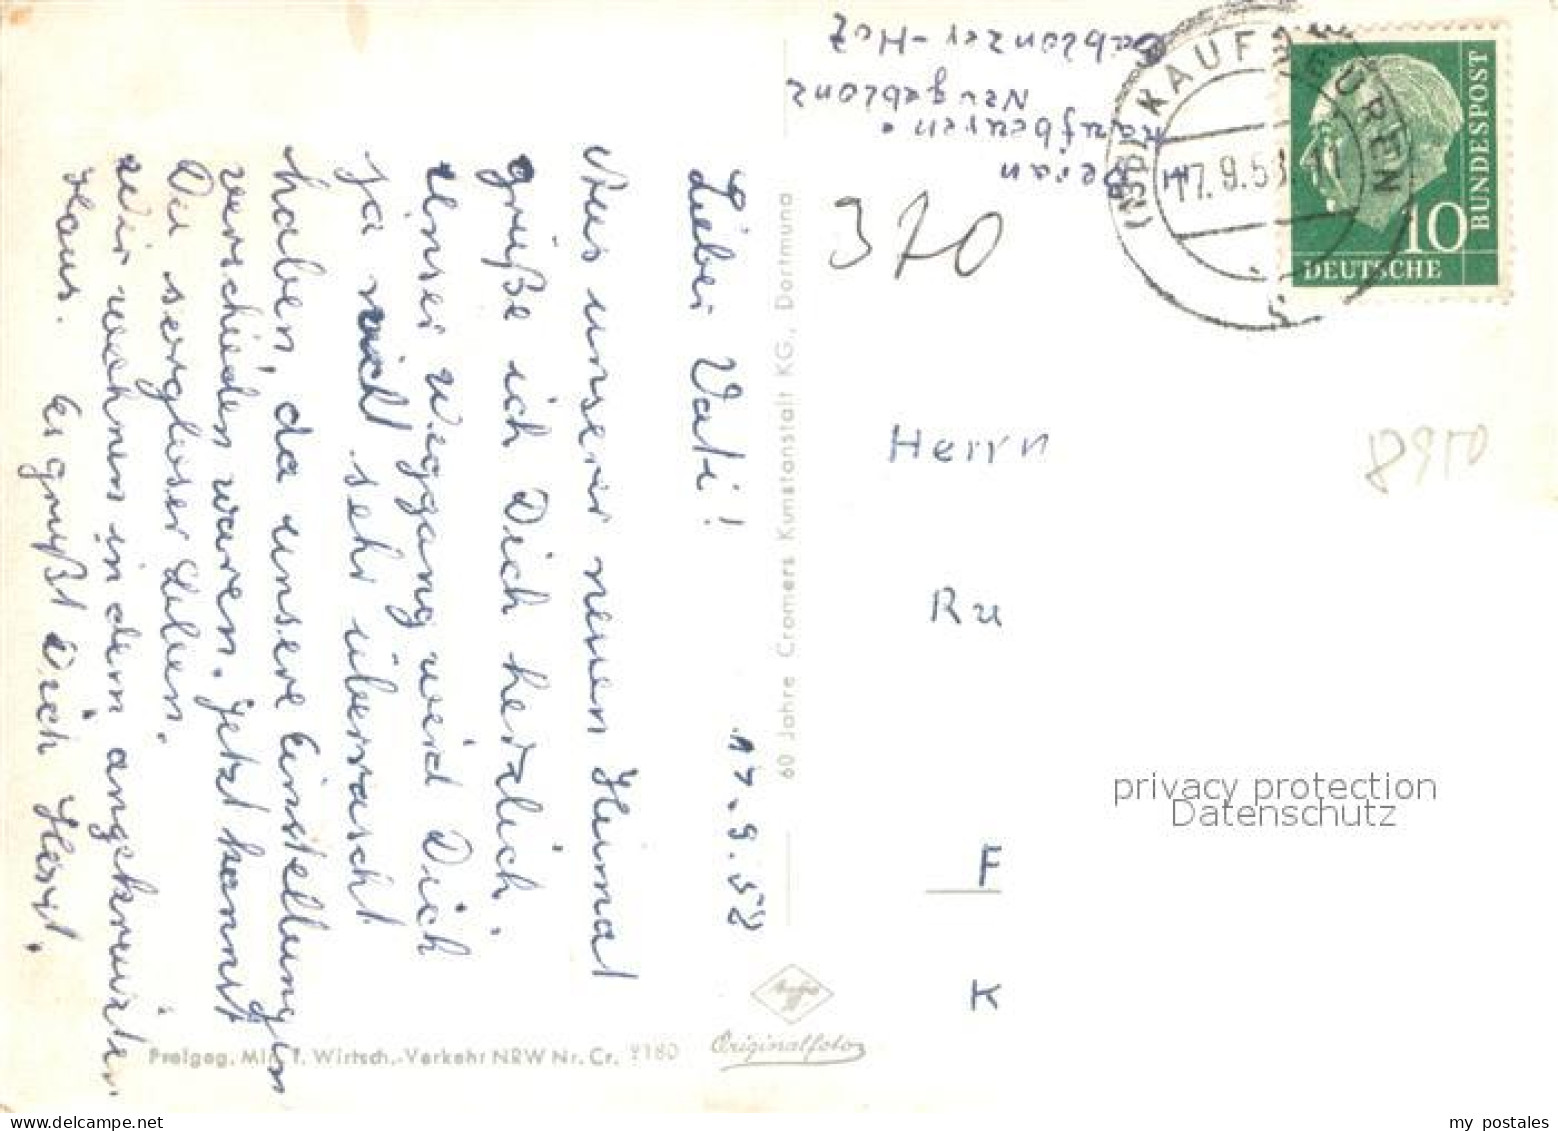 Lieber Vati!
17.9.58
Aus unserer neuen Heimat
grüße ich Dich herzlich.
Unser Weggang wird Dich
ja nicht sehr überrascht
haben, da unsere Einstellungen
verschieden waren. Jetzt kannst
Du sorgloser Leben.
Wir wohnen in dem angekreuzten
Haus. Es grüßt Dich Horst.
60 Jahre Cramers Kunstanstalt KG., Dortmund
Originalfoto
Freigeg. Min. f. Wirtsch.-Verkehr NRW Nr. Cr. 9180
Kaufbeuren-
Neugablonz
Gablonzer-Hof
370
KAUFBEUREN
17.9.58
BUNDESPOST
10
DEUTSCHE
8950
Herrn
Ru
F
K
privacy protection
Datenschutz
my postales